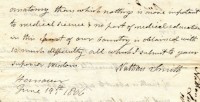 anatomy than which nothing is more important
to medical science & no part of medical education
in this part of our country is obtained with
so much difficulty all which I submit to your
superior wisdom
Nathan Smith
Hanover
June 19th